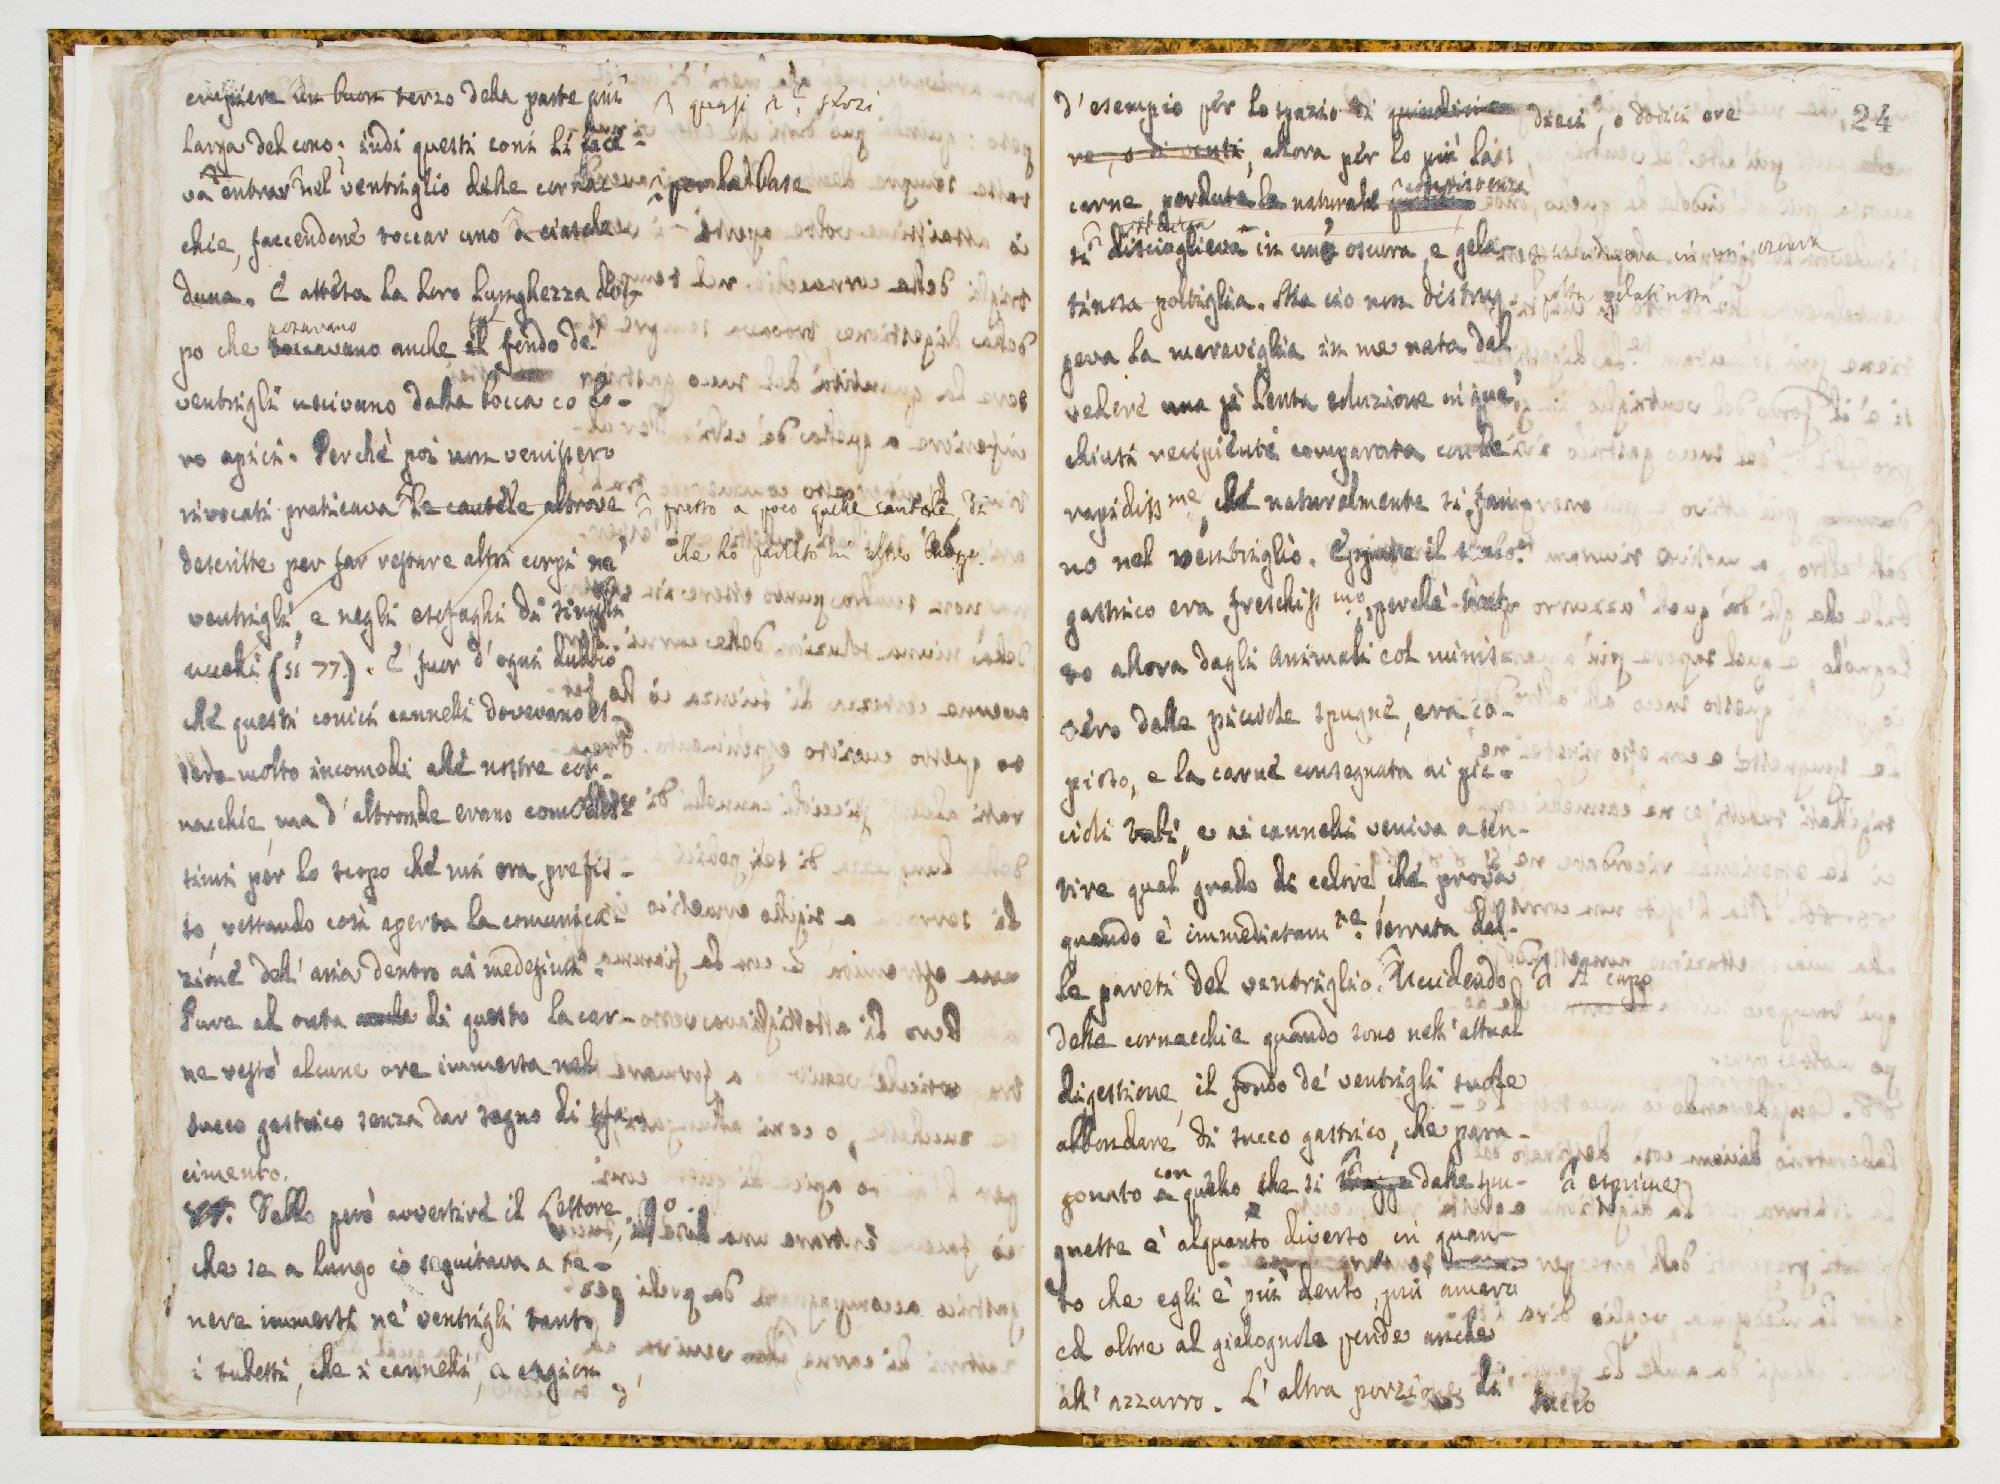 empiere un buon terzo della parte più
ꝫ quasi 2 terzi
larga del cono; indi questi coni li face-
va entrar nel ventriglio delle cornac-
per la base
chie, faccendone toccar uno a ciasche-
duna. E attesa la loro lunghezza dop-
posavano
sul
po che toccavano anche il fondo de'
ventrigli uscivano dalla bocca co lo-
ro apici. Perchè poi non venissero
rivocati praticava le cautele altrove
presso a poco quelle cautele, di
descritte per far restare altri corpi ne'
che ho parlato in altri luoghi.
ventrigli, e negli esofaghi di simili
uccelli (51 77). È fuor d'ogni dubbio
che questi conici cannelli dovevano es-
sere molto incomodi alle nostre cor-
nacchie, ma d'altronde erano comodis-
simi per lo scopo che mi era prefis-
so, restando così aperta la comunica-
zione dell'aria dentro ai medesimi.
Pure ad onta di questo la car-
ne restò alcune ore immersa nel
succo gastrico senza dar segno di sfa-
cimento.
Debbo però avvertire il Lettore,
che se a lungo io seguitava a te-
nere immersi ne' ventrigli tanto
i tubetti, che i cannelli, a cagion
d'
24
d'esempio per lo spazio di quindici o dieci, o dodici ore
re, o di venti, allora per lo più la
consistenza
carne, perduta la naturale
si discioglieva in una oscura, e gela-
oscura
tinosa poltiglia. Ma ciò non distrug-
polta gelatinosa
geva la meraviglia in me nata dal
vedere una sì lenta soluzione in que'
chiusi recipienti comparata colle
rapidissme, che naturalmente si fan-
no nel ventriglio. Eppure il succo
gastrico era freschissmo, perchè trat-
to allora dagli Animali col minis-
tero delle piccole spugne, era co-
pioso, e la carne consegnata ai pic-
cioli tubi, e ai cannelli veniva a sen-
tire qual grado di calore, che prova
quando è immediatamte serrata dal-
le pareti del ventriglio. Uccidendo
A capo
delle cornacchie quando sono nell'attual
digestione, il fondo de' ventrigli suole
abbondare di succo gastrico, che para-
con
gonato a quello che si dalle spu-
esprime
gnette è alquanto diverso in quan-
to che egli è più denso, più amaro
ed oltre al giallognolo pende anche
all'azzurro. L'altra porzione di
succo